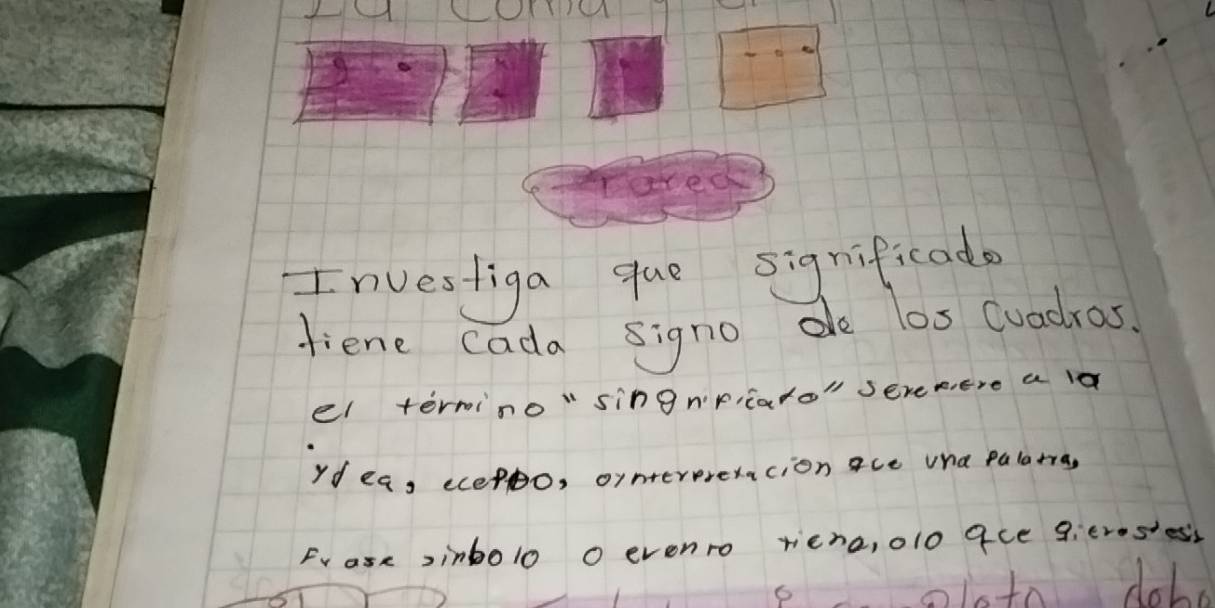 La coma y el
Tarea
Investiga que significado
tiene cada signo de los cuadros.
el término "singnificato" serefiere a la
ydea, ecepto, oynterpretacion qce una palatra,
Frase simbolo o evento tiena, olo qce